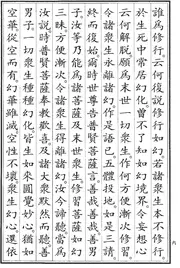 誰為修行云何復說修行如幻若諸眾生本不修行
於生死中常居幻化曾不了知如幻境界令妄想心
云何解脫願為末世一切眾生作何方便漸次修習
令諸眾生永離諸幻作是語已五體投地如是三請
終而復始爾時世尊告普賢菩薩言善哉善哉善男
子汝等乃能為諸菩薩及末世眾生修習菩薩如幻
三昧方便漸次令諸眾生得離諸幻汝今諦聽當為
汝說時普賢菩薩奉教歡喜及諸大眾默然而聽善
男子一切眾生種種幻化皆生如來圓覺妙心猶如
空華從空而有幻華雖滅空性不壞眾生幻心還依